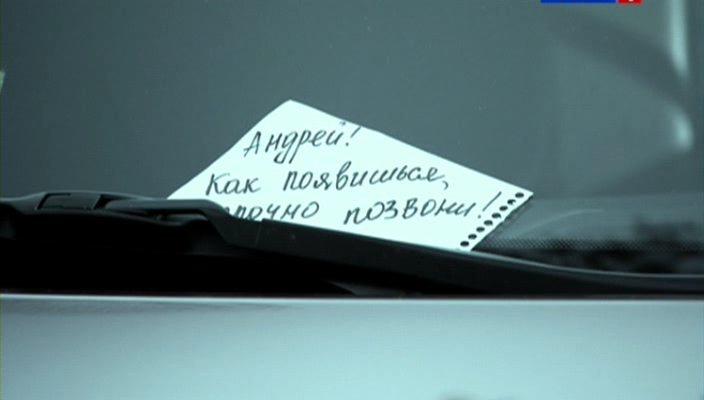 Андрей!
Как появишься,
срочно позвони!